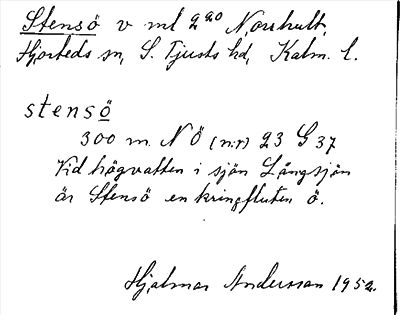 Stensö v ml 220 Norrhult,
Hjorteds sn, S. Tjusts hd, Kalm. l.
stensö
300 m. NÖ (n:r) 23 G 37
Vid högvatten i sjön Långsjön
är Stensö en kringfluten ö.
Hjalmar Andersson 1952.